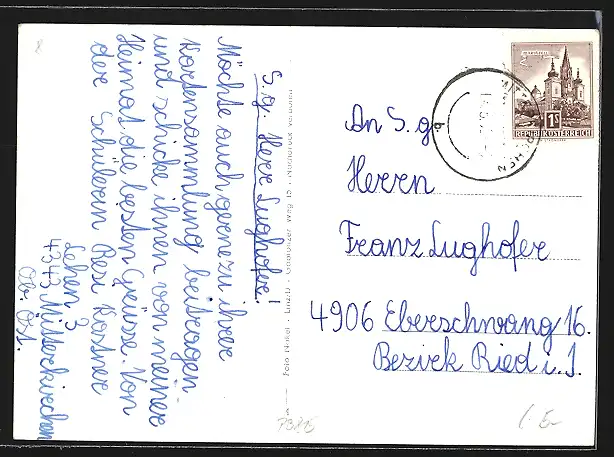 S. g. Herr Lughofer!
Möchte auch gerne zu ihrer
Kartensammlung beitragen
und schicke ihnen von meiner
Heimat die besten Grüsse. Von
der Schülerin Resi Kastner
Lehen 3
4343 Mitterkirchen
Ob. Öst.
Weg 15 · Nachdruck verboten
REPUBLIK ÖSTERREICH
1S
An S. g.
Herrn
Franz Lughofer
4906 Eberschwang 16.
Bezirk Ried i. I.
8